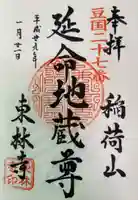 奉拝
豆国二十七番
稲荷山
延命地蔵尊
平成廿九年
一月二十一日
東林寺